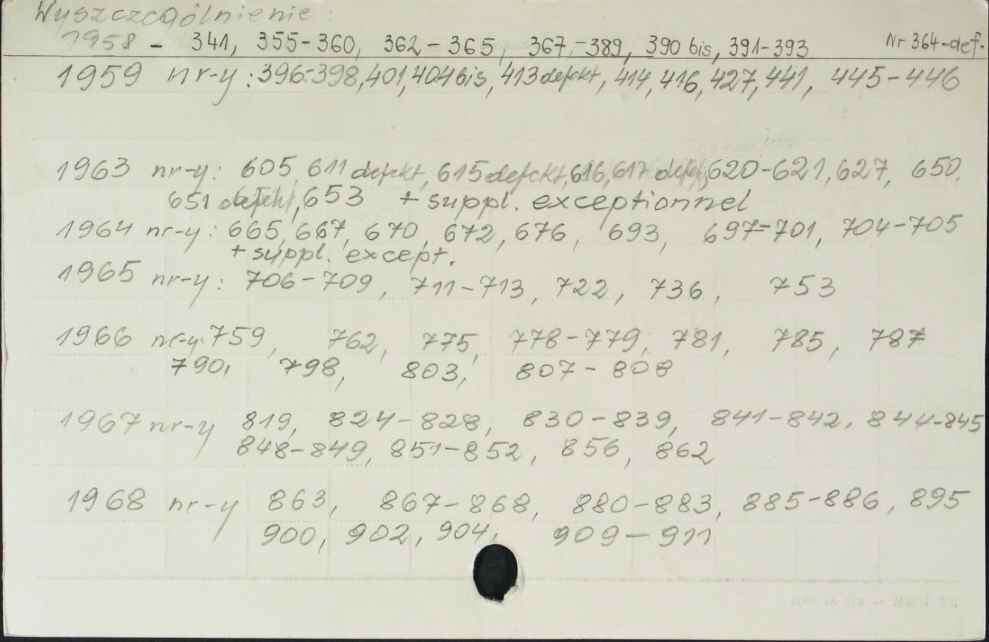 Wyszczególnienie:
1958 - 341, 355-360, 362-365, 367,-389, 390 bis, 391-393 Nr 364-def.
1959 nr-y: 396-398, 401, 404 bis, 413 defekt, 414, 416, 427, 441, 445-446
1963 nr-y: 605, 611 defekt, 615 defekt, 616, 617 defekt, 620-621, 627, 650,
651 defekt, 653 + suppl. exceptionnel
1964 nr-y: 665, 667, 670, 672, 676, 693, 697-701, 704-705
+ suppl. except.
1965 nr-y: 706-709, 711-713, 722, 736, 753
1966 nr-y 759, 762, 775, 778-779, 781, 785, 787
790, 798, 803, 807-808
1967 nr-y 819, 824-828, 830-839, 841-842, 844-845
848-849, 851-852, 856, 862
1968 nr-y 863, 867-868, 880-883, 885-886, 895
900, 902, 904, 909-911